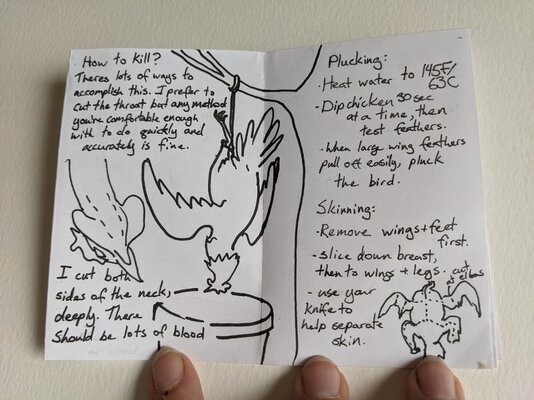 How to kill?
Theres lots of ways to
accomplish this. I prefer to
cut the throat but any method
you're comfortable enough
with to do quickly and
accurately is fine.
I cut both
sides of the neck,
deeply. There
should be lots of blood
Plucking:
· Heat water to 145F/
63C
- Dip chicken 30 sec
at a time, then
test feathers.
- When large wing feathers
pull off easily, pluck
the bird.
Skinning:
- Remove wings + feet
first.
- slice down breast,
then to wings + legs.
- use your
knife to
help separate
skin.
cut
at elbows